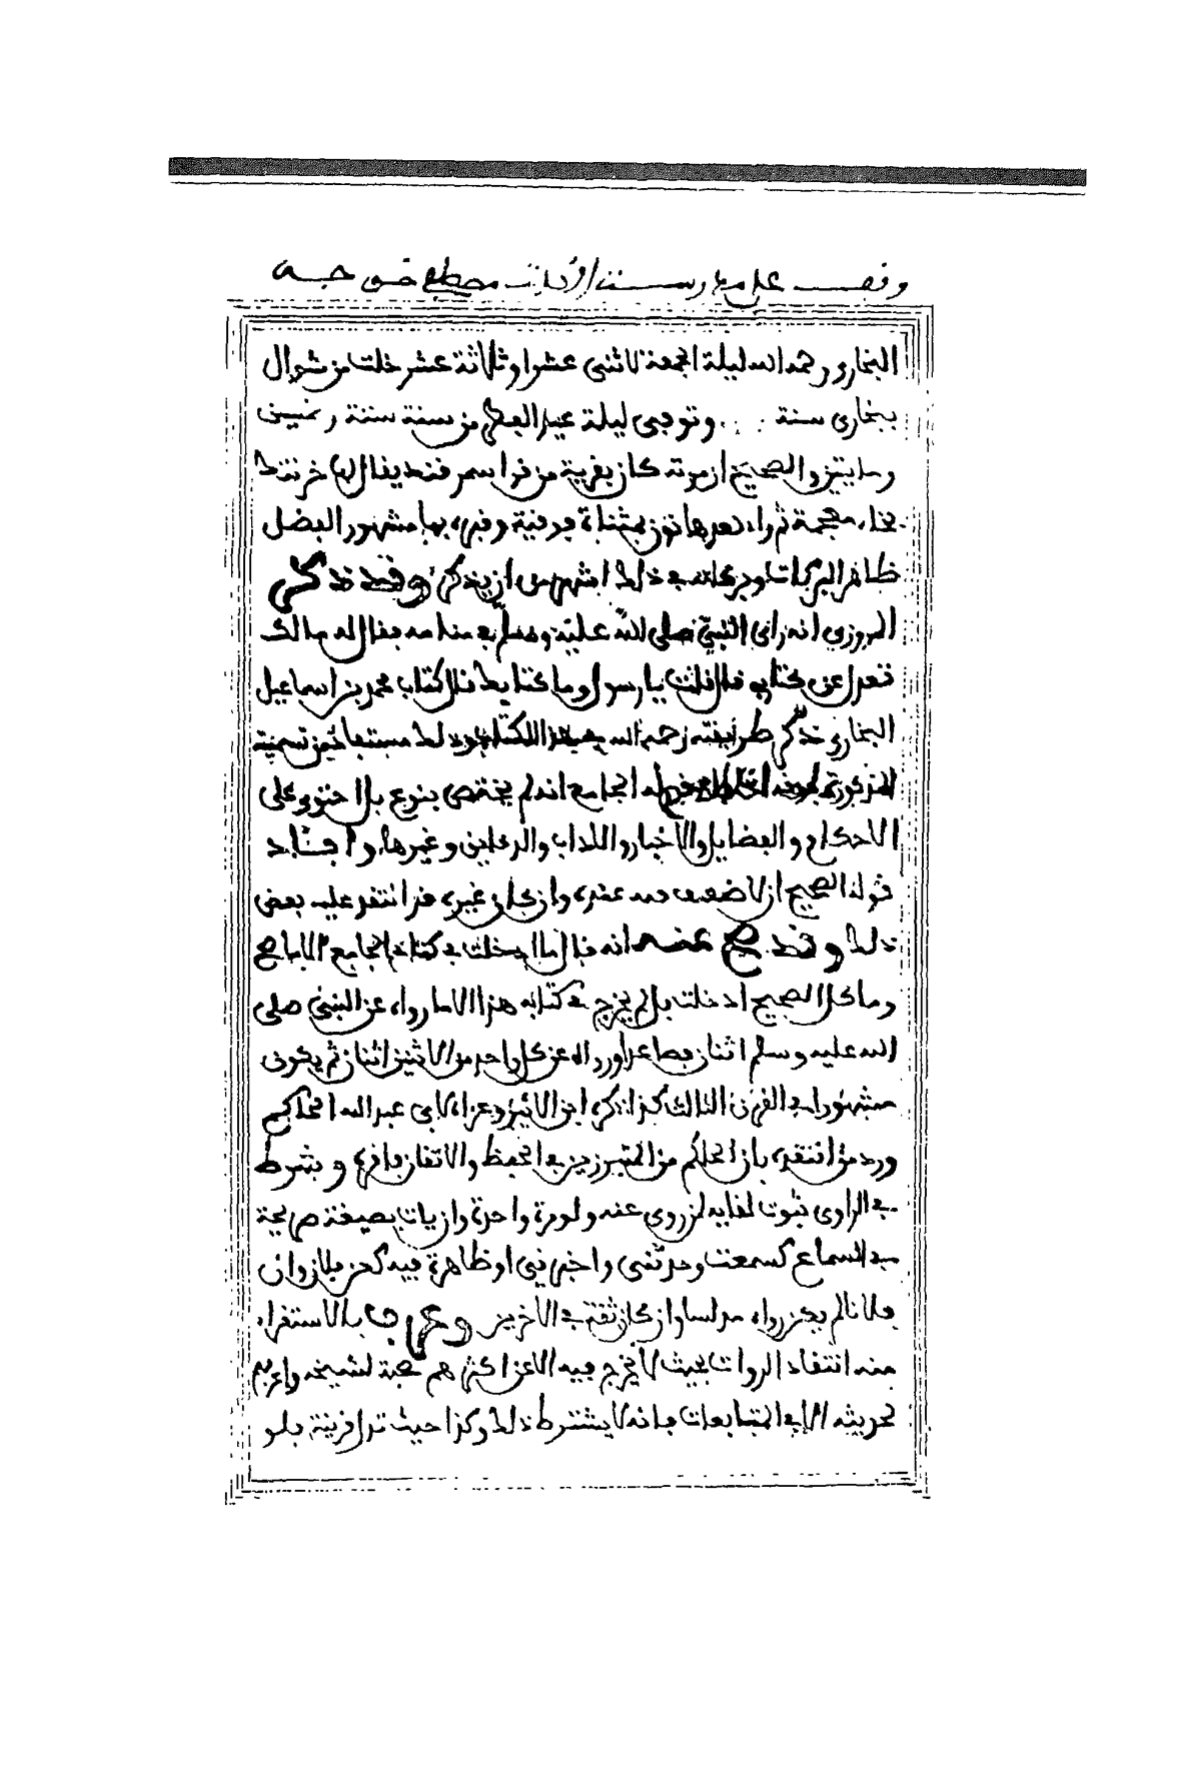 وقف على مدرسة مصطفى خوجه
البخاري رحمه الله ليلة الجمعة لاثنى عشر او ثلاثة عشر خلت من شوال
ببخارى سنة وتوفي ليلة عيد الفطر من سنة ستة وخمسين
ومايتين والصحيح ان موته كان بقرية من قرا سمرقند يقال لها خرتنك
بخاء معجمة ثم راء بعدها نون بمثناة فوقية وقبره بها مشهور الفضل
ظاهر البركات وبركاته في ذلك اشهر من ان يذكر وقد ذكر
المروزي انه راى النبي صلى الله عليه وسلم في منامه فقال له مالك
تعدل عن كتابي قال قلت يا رسول وما كتابك قال كتاب محمد بن اسماعيل
البخاري ذكر طريقته رحمه الله في هذا الكتاب وذلك مستفاد من تسميته
له الجامع انه لم يختص بنوع بل احتوى على
الاحكام والفضايل والاخبار والاداب والرقايق وغيرها وافاد
قوله الصحيح ان لا ضعيف فيه عنده وان كان غيره قد انتقد عليه بعض
ذلك وقد صح عنه انه قال ما ادخلت في كتاب الجامع الا ما صح
وما كل الصحيح ادخلت بل لم يخرج في كتابه هذا الا ما رواه عن النبي صلى
الله عليه وسلم اثنان فصاعدا ورواه عن كل واحد من الاثنين اثنان ثم يكون
مشهورا في القرن الثالث كذا ذكره ابن الاثير وعزاه لابي عبد الله الحاكم
ورد من انتقده بان الحاكم من المبرزين في الحفظ والاتقان واقره وبشرط
في الراوى ثبوت لقايه لمن روى عنه ولو مرة واحدة وان يات بصيغة صريحة
في السماع كسمعت وحدثنى واخبرني او ظاهرة فيه كعن فلان وان
فلانا لم يكن رواه مدلسا وان كان ثقة في الاخرين وعرف بالاستقراء
منه انتقاد الروات بحيث لا يخرج فيه الا عن اكثرهم صحبة لشيخه واعرفهم
لحديثه الا في المتابعات فانه لا يشترط ذلك وكذا حيث تدل قرينة فلو